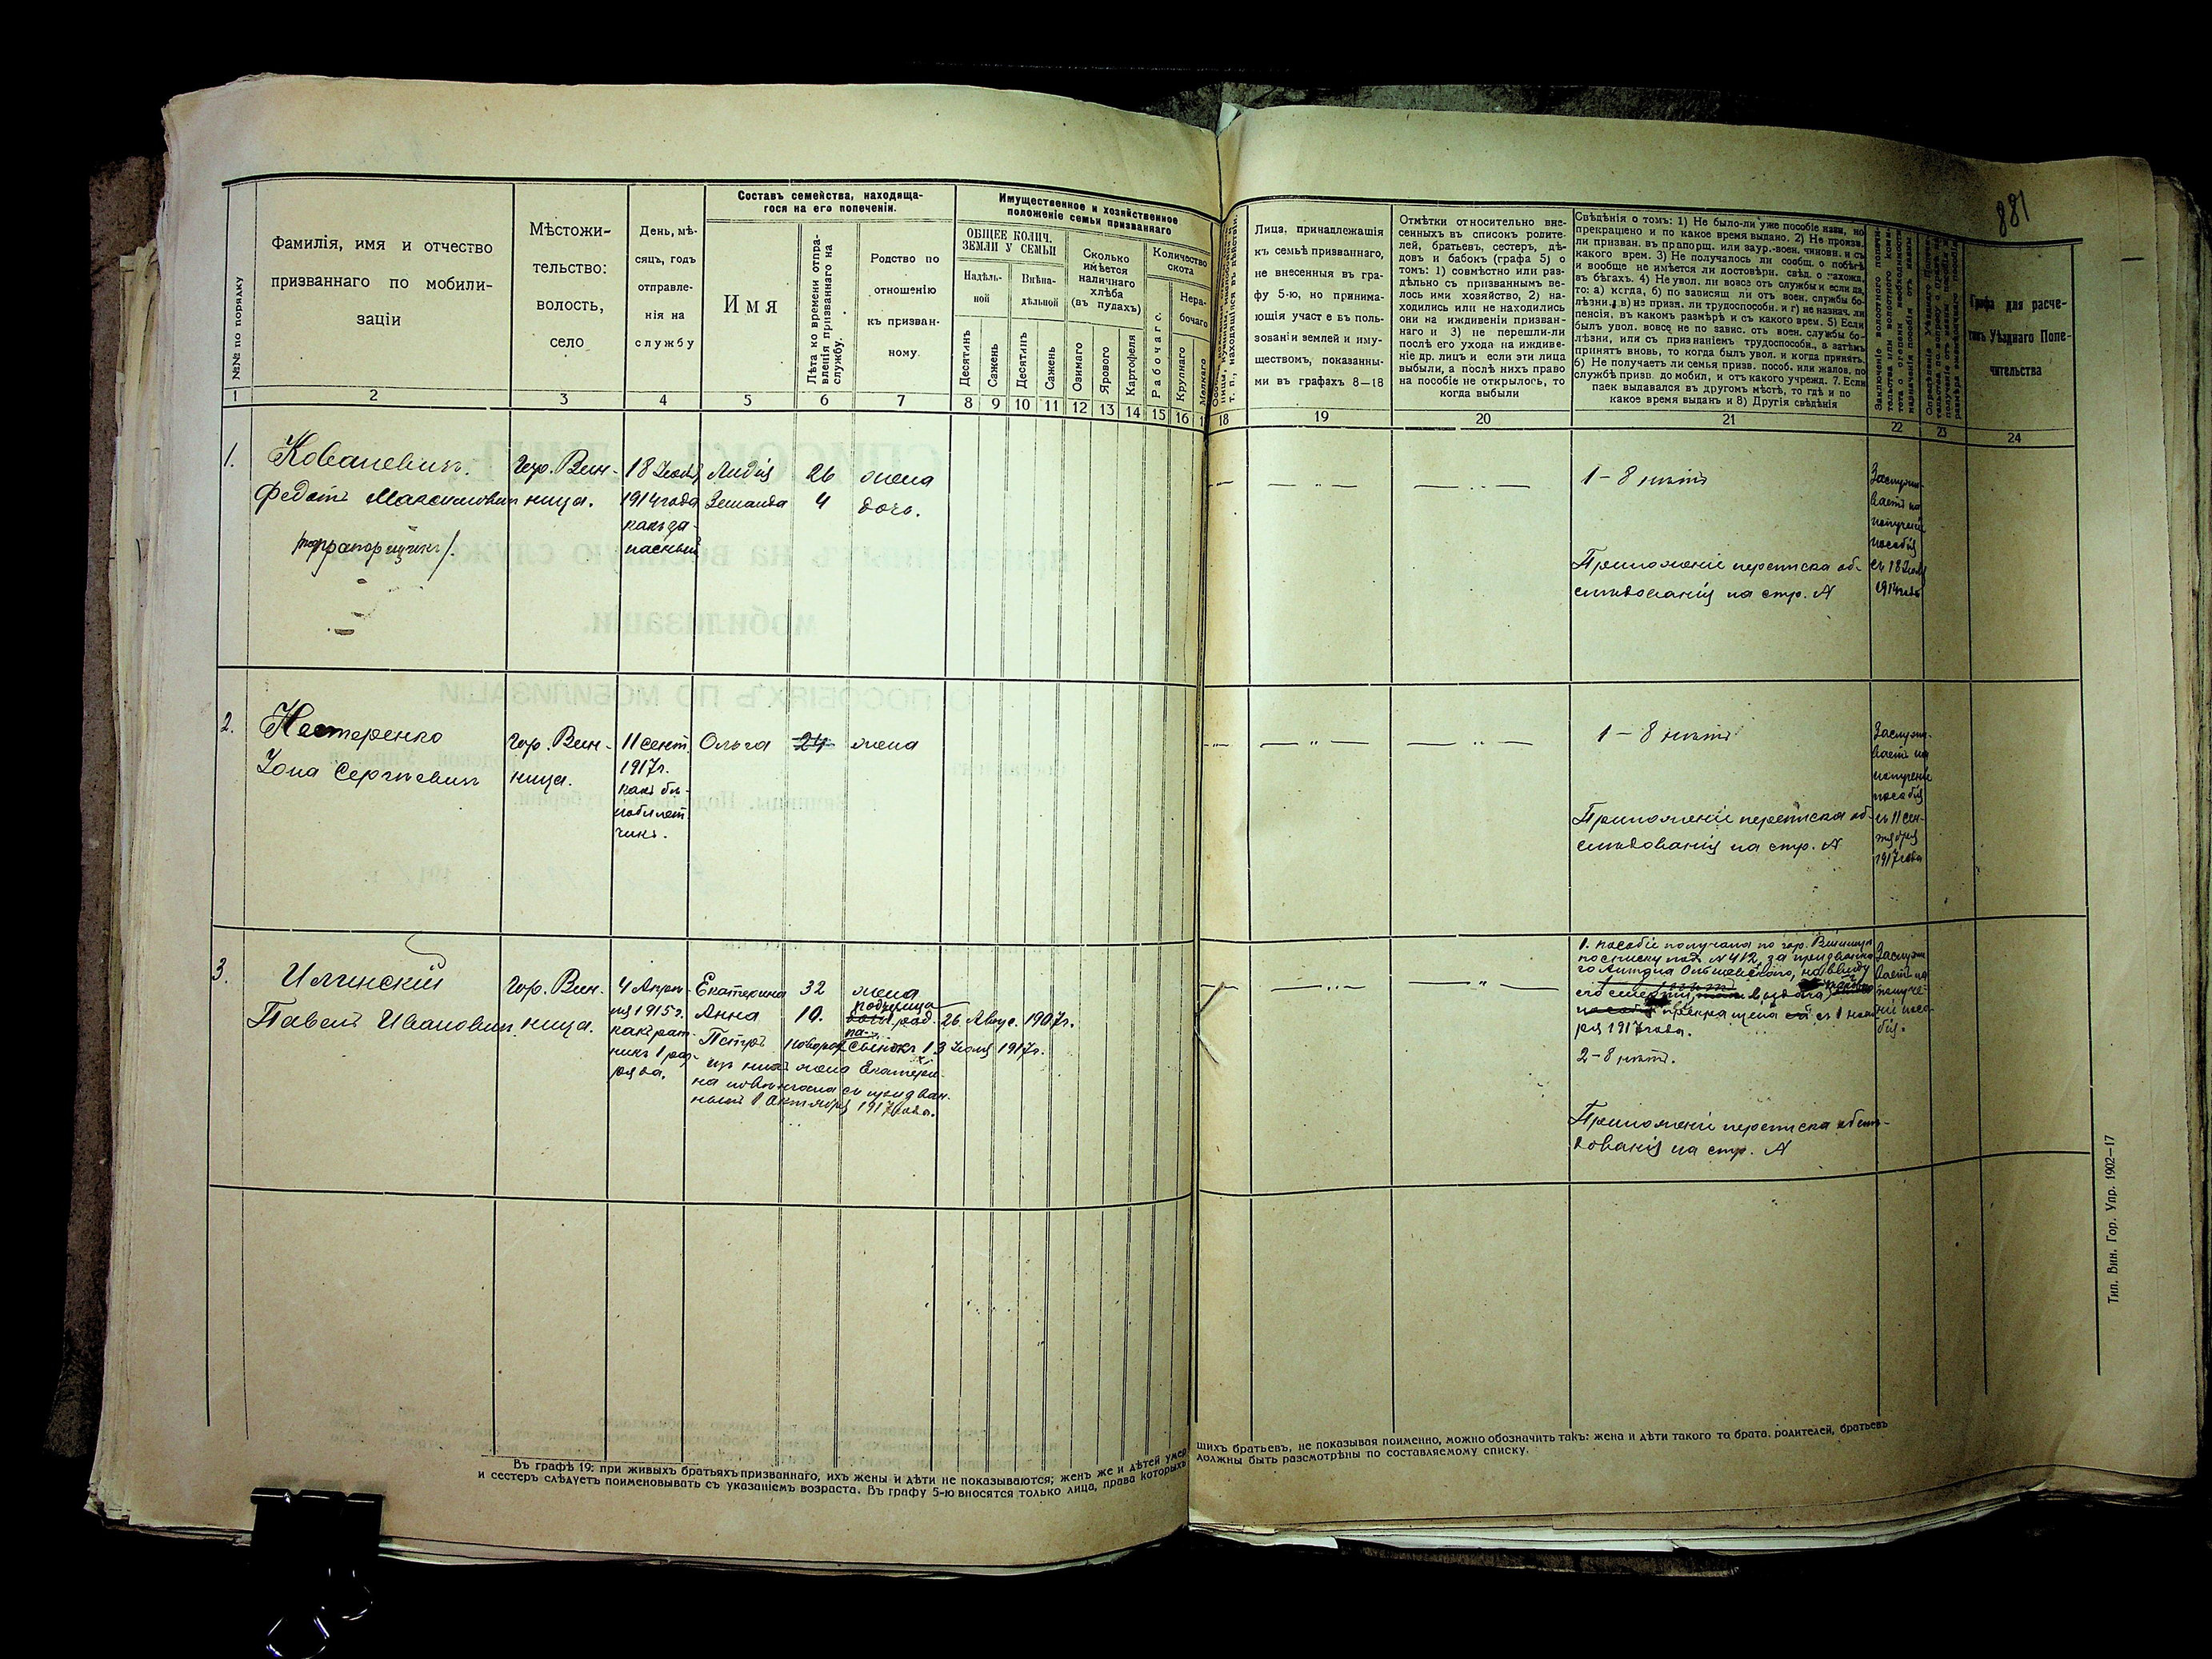 881
№№ по порядку
Фамилія, имя и отчество
призваннаго по мобили-
заціи
Мѣстожи-
тельство:
волость,
село
День, мѣ-
сяцъ, годъ
отправле-
нія на
службу
Составъ семейства, находяща-
гося на его попеченіи.
Имя
Лѣта ко времени отпра-
вленія призваннаго на
службу.
Родство по
отношенію
къ призван-
ному.
Имущественное и хозяйственное
положеніе семьи призваннаго
ОБЩЕЕ КОЛИЧ.
ЗЕМЛИ У СЕМЬИ
Надѣль-
ной
Внѣна-
дѣльной
Десятинъ
Сажень
Десятинъ
Сажень
Сколько
имѣется
наличнаго
хлѣба
(въ пудахъ)
Озимаго
Ярового
Картофеля
Количество
скота
Рабочаго с.
Нера-
бочаго
Крупнаго
Мелкаго
Лица, принадлежашія
къ семьѣ призваннаго,
не внесенныя въ гра-
фу 5-ю, но принима-
ющія участ е въ поль-
зованіи землей и иму-
ществомъ, показанны-
ми въ графахъ 8—18
Отмѣтки относительно вне-
сенныхъ въ списокъ родите-
лей, братьевъ, сестеръ, дѣ-
довъ и бабокъ (графа 5) о
томъ: 1) совмѣстно или раз-
дѣльно съ призваннымъ ве-
лось ими хозяйство, 2) на-
ходились или не находились
они на иждивеніи призван-
наго и 3) не перешли-ли
послѣ его ухода на иждиве-
ніе др. лицъ и если эти лица
выбыли, а послѣ нихъ право
на пособіе не открылось, то
когда выбыли
Свѣдѣнія о томъ: 1) Не было-ли уже пособіе назн, но
прекращено и по какое время выдано. 2) Не произв.
ли призван. въ прапорщ. или заур.-воен. чиновн. и съ
какого врем. 3) Не получалось ли сообщ. о побѣгѣ
и вообще не имѣется ли достовѣрн. свѣд. о нахожд.
въ бѣгахъ. 4) Не увол. ли вовсе отъ службы и если да,
то: а) когда, б) по зависящ ли отъ воен. службы бо-
лѣзни, в) не призн. ли трудоспособн. и г) не назнач. ли
пенсія, въ какомъ размѣрѣ и съ какого врем. 5) Если
былъ увол. вовсе не по завис. отъ воен. службы бо-
лѣзни, или съ признаніемъ трудоспособн., а затѣмъ
принятъ вновь, то когда былъ увол. и когда принятъ.
6) Не получаетъ ли семья призв. пособ. или жалов. по
службѣ призв. до мобил, и отъ какого учрежд. 7. Если
паек выдавался въ другомъ мѣстѣ, то гдѣ и по
какое время выданъ и 8) Другія свѣдѣнія
Графа для расче-
товъ Уѣзднаго Попе-
чительства
1 2 3 4 5 6 7 8 9 10 11 12 13 14 15 16 1 18 19 20 21 22 23 24
1.
Ковалевичъ
Федотъ Максимович
/подпрапорщикъ/.
Гор. Вин-
ница.
18 Іюля
1914 года
какъ за-
пасный
Лидія 26 жена
Зинаида 4 дочь.
1 – 8 нѣтъ
Приложеніе переписка об-
слѣдованія на стр. №
Заслужи-
ваетъ на
полученіе
пособія
съ 18 Іюля
1914 года
2.
Нестеренко
Іона Сергѣевичъ
гор. Вин-
ница.
11 сент.
1917 г.
какъ бѣ-
лобилет
чикъ.
Ольга 24 жена
1 – 8 нѣтъ
Приложеніе переписка об-
слѣдованія на стр. №
Заслужи-
ваетъ на
полученіе
пособія
съ 11 сен-
тября
1917 года
3.
Илинскій
Павелъ Иванович
Гор. Вин-
ница.
4 Апрѣ-
ля 1915 г.
какъ рат-
никъ 1 раз-
ряда.
Екатерина 32 жена
Анна 10. род. 26 Авгус. 1907 г.
Петръ новорож сынокъ 13 Іюля 1917 г.
изъ нихъ жена Екатери-
на повѣнчана съ призван-
нымъ 1 Октября 1917 года.
1. пособіе получала по гор. Винница
по списку под № 412, за призванна
го его смерти,
прекращена съ 1 ноя
ря 1917 года.
2 – 8 нѣтъ.
Приложеніе переписка обслѣ-
дованія на стр. №
Заслужи
ваетъ на
получе-
ніе посо-
бія.
Въ графѣ 19: при живыхъ братьяхъ призваннаго, ихъ жены и дѣти не показываются; женъ же и дѣтей умер
шихъ братьевъ, не показывая поименно, можно обозначить такъ: жена и дѣти такого то брата. родителей, братьевъ
и сестеръ слѣдуетъ поименовывать съ указаніемъ возраста. Въ графу 5-ю вносятся только лица, права которыхъ
должны быть разсмотрѣны по составляемому списку.
Тип. Вин. Гор. Упр. 1902—17